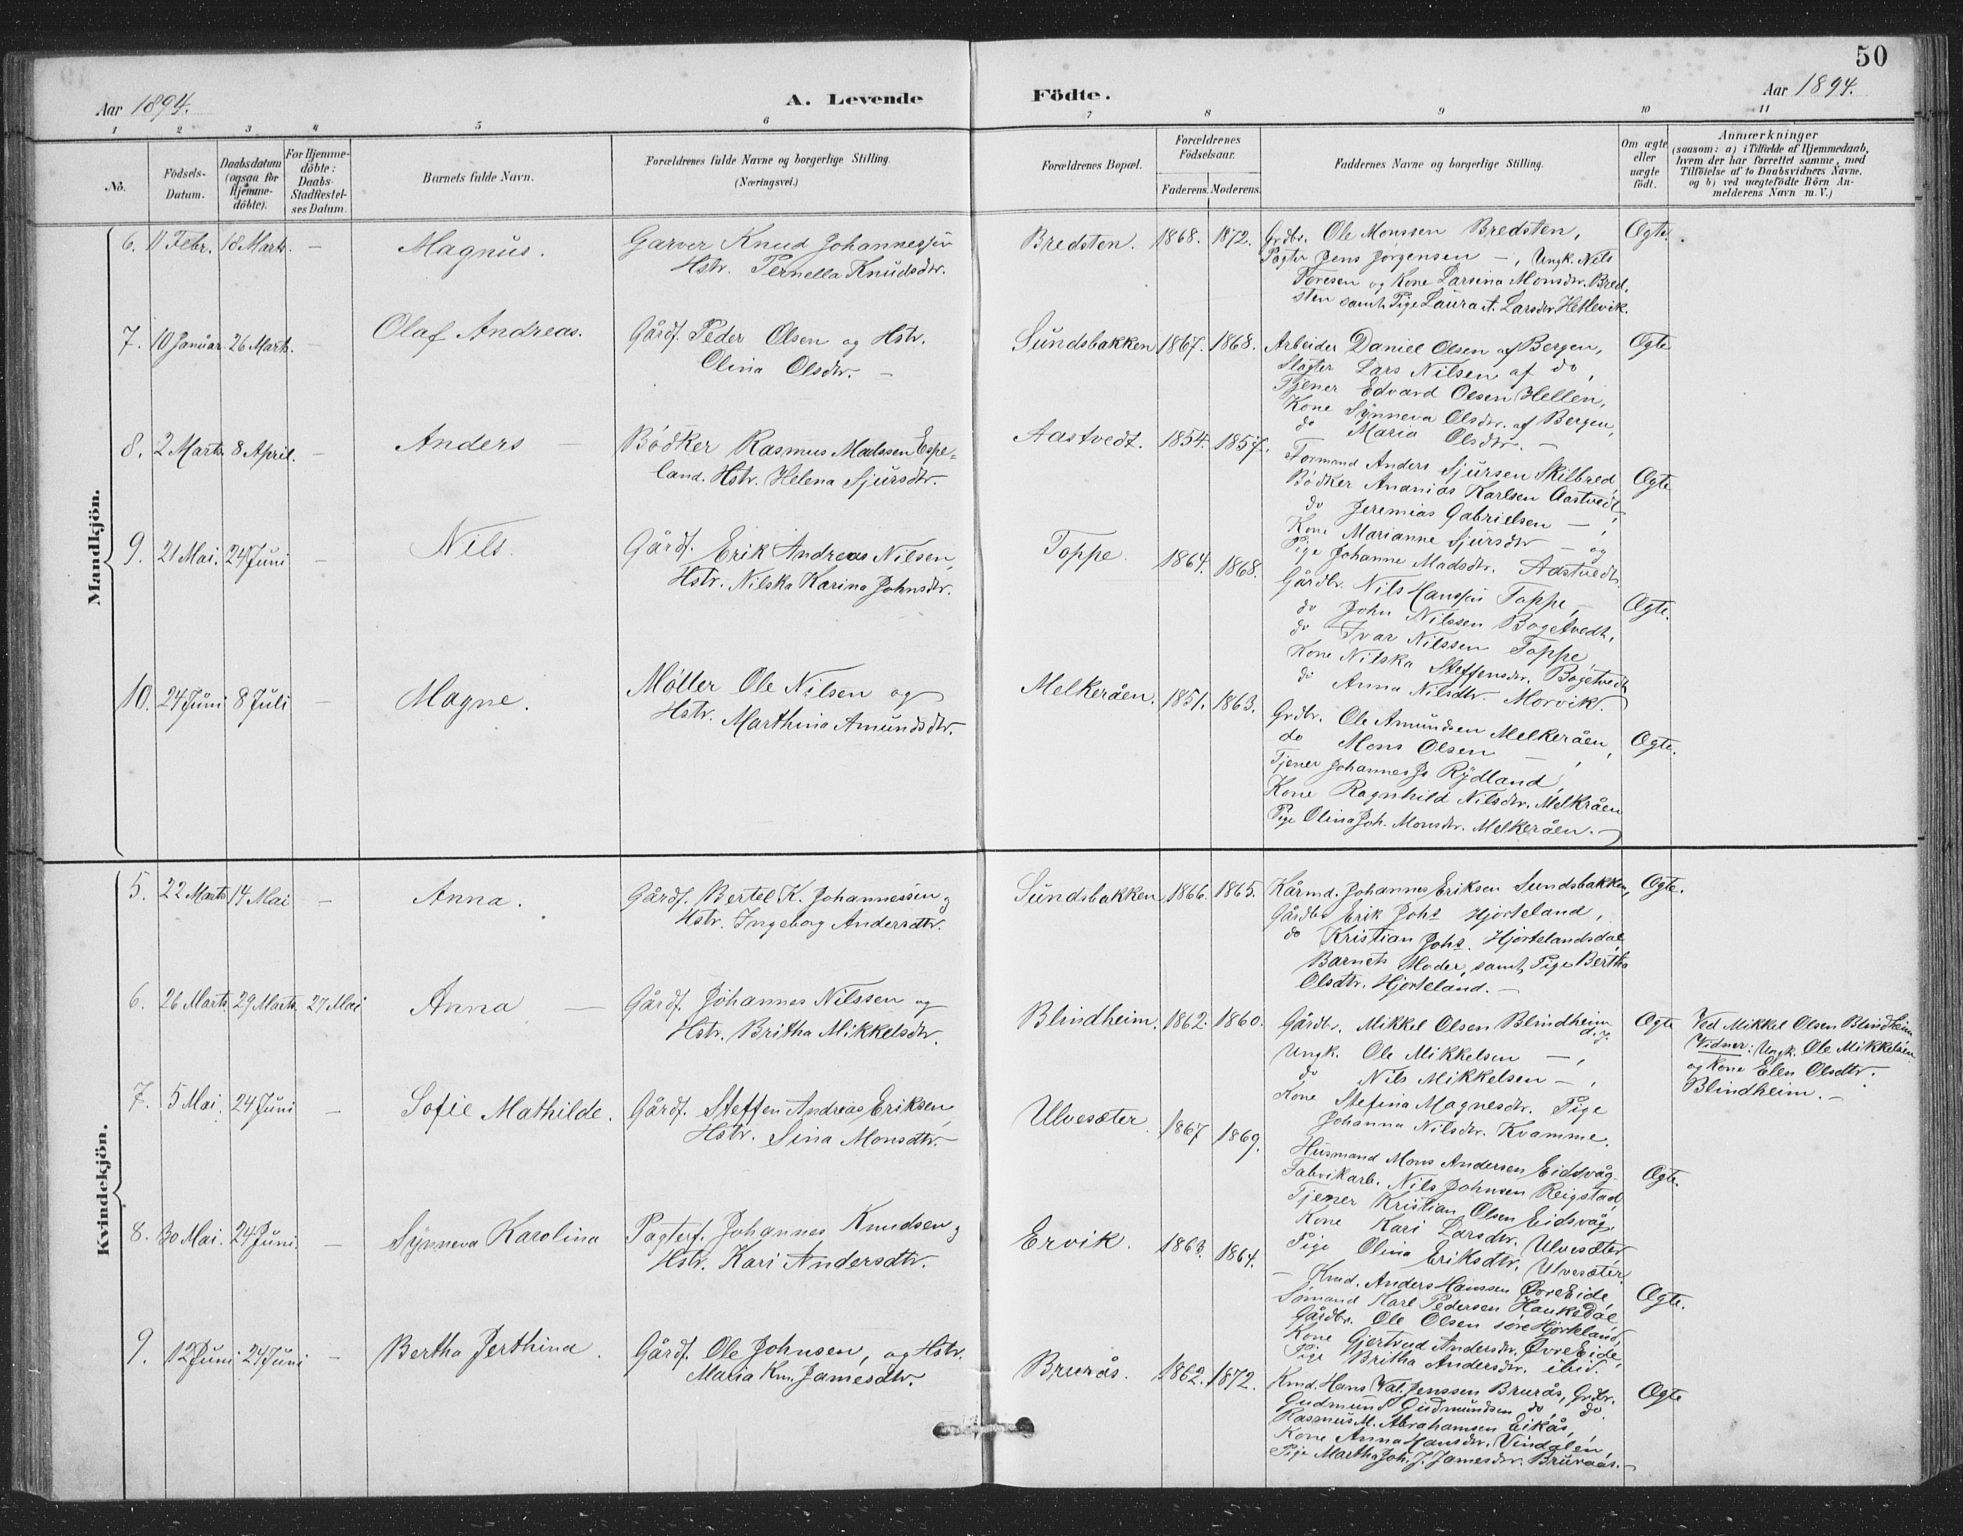 50
Aar 1894.
A. Levende Födte.
Aar 1894.
1 2 3 4 5 6 7 8 9 10 11
No.
Födsels-
Datum.
Daabsdatum
(ogsaa for
Hjemme-
döbte).
For Hjemme-
döbte:
Daabs-
Stadfæstel-
ses Datum.
Barnets fulde Navn.
Forældrenes fulde Navne og borgerlige Stilling.
(Næringsvei.)
Forældrenes Bopæl.
Forældrenes
Födselsaar.
Faderens. Moderens.
Faddernes Navne og borgerlige Stilling.
Om ægte
eller
uægte
födt.
Anmærkninger
(saasom: a) i Tilfælde af Hjemmedaab,
hvem der har forrettet samme, med
Tilföielse af to Daabsvidners Navne,
og b) ved uægtefödte Börn An-
melderens Navn m. V.)
Mandkjön.
6. 11 Febr. 18 Marts. — Magnus.
Garver Knud Johannessen
Hstr. Pernella Knudsdtr.
Bredsten. 1868. 1872.
Grdbr. Ole Monssen Bredsten,
Pagter Jens Jørgensen —, Ungk. Nils
Toresen og Kone Larsina Monsdtr. Bred-
sten samt Pige Laura A. Larsdtr. Hetlevik.
Ægte.
7. 10 Januar. 26 Marts. — Olaf Andreas.
Gårdf. Peder Olsen og Hstr.
Olina Olsdtr. —
Sundsbakken 1867. 1868.
Arbeider Daniel Olsen af Bergen,
Slagter Lars Nilsen af do,
Tjener Edvard Olsen Hellen,
Kone Synneva Olsdtr. af Bergen,
do Maria Olsdtr. —
Ægte
8. 2 Marts 8 April. — Anders —
Bödker Rasmus Madssen Espe-
land. Hstr. Helena Sjursdtr.
Aastvedt. 1854. 1857.
Formand Anders Sjursen Skilbred,
Bödker Ananias Karlsen Aastvedt,
do Jeremias Gabrielsen —,
Kone Marianne Sjursdtr — og
Pige Johanne Madsdtr. Aastvedt.
Ægte
9. 21 Mai. 24 Juni — Nils.
Gårdf. Erik Andreas Nilsen,
Hstr. Nilska Karina Johnsdtr.
Toppe. 1864. 1868.
Gårdbr. Nils Hanssen Toppe,
do John Nilssen Bogetvedt,
do Ivar Nilssen Toppe
Kone Nilska Steffensdtr. Bogetvedt
do Anna Nilsdtr. Morvik.
Ægte.
10. 24 Juni 8 Juli — Magne.
Möller Ole Nilsen og
Hstr. Marthina Amundsdtr.
Melkeråen. 1851. 1863.
Grdbr. Ole Amundsen Melkeråen,
do Mons Olsen —,
Tjener Johannes Js Rydland,
Kone Ragnhild Nilsdtr. Melkråen
Pige Olina Joh. Monsdtr. Melkeråen. —
Ægte.
Kvindekjön.
5. 22 Marts 14 Mai — Anna.
Gårdf. Bertel K. Johannessen og
Hstr. Ingeborg Andersdtr.
Sundsbakken 1866. 1865.
Kårmd. Johannes Eriksen Sundsbakken,
Gårdbr Erik Johs Hjorteland,
do Kristian Johs. Hjortelandsdal,
Barnets Moder, samt Pige Bertha
Olsdtr. Hjorteland. —
Ægte.
6. 26 Marts. 29 Marts. 27 Mai Anna —
Gårdf. Johannes Nilssen og
Hstr. Britha Mikkelsdtr.
Blindheim. 1862. 1860.
Gårdbr. Mikkel Olsen Blindheim
Ungk. Ole Mikkelsen —,
do Nils Mikkelsen —,
Kone Stefina Magnesdtr. Pige
Johanna Nilsdtr. Kvamme.
Ægte
Ved Mikkel Olsen Blindheim
Vidner: Ungk. Ole Mikkelsen
og Kone Elen Olsdtr.
Blindheim. —
7. 5 Mai. 24 Juni — Sofie Mathilde.
Gårdf. Steffen Andreas Eriksen,
Hstr. Sina Monsdtr. —
Ulvesæter. 1867 1869.
Husmand Mons Andersen Eidsvåg
Fabrikarb. Nils Johnsen Reigstad,
Tjener Kristian Olsen Eidsvåg,
Kone Kari Larsdtr. Ulvesæter
Pige Olina Eriksdtr. Ulvesæter.
Ægte.
8. 30 Mai. 24 Juni. — Synneva Karolina
Pagterf. Johannes Knudsen og
Hstr. Kari Andersdtr.
Ervik. 1863. 1864.
— Kmd. Anders Hanssen ØvreEide,
Sömand Karl Pedersen Haukedal,
Gårdbr. Ole Olsen søre Hjorteland,
Kone Gjertrud Andersdtr. ØvreEide,
Pige Britha Andersdtr. ibid.
Ægte.
9. 12 Juni 24 Juni — Bertha Jerthina.
Gårdf. Ole Johnsen, og Hstr.
Maria Kn. Jamesdtr.
Brurås. 1862. 1872.
Kmd. Hans Val. Jenssen Brurås, Grdbr.
Gudmund Gudmundsen do, do.
Rasmus M. Abrahamsen Eikås,
Kone Anna Hansdtr. Vindalen,
Pige Martha Joh. J. Jamesdtr. Bruraas. —
Ægte